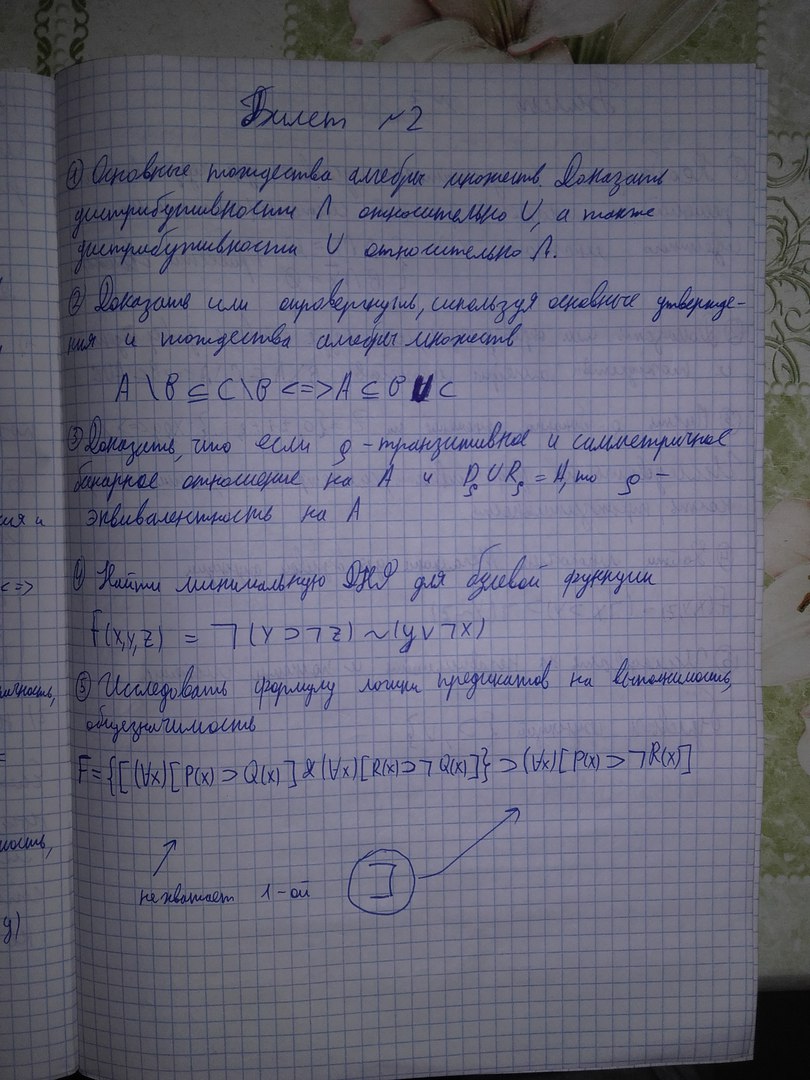 Билет №2
① Основные тождества алгебры множеств. Доказать
дистрибутивности Λ относительно U, а также
дистрибутивности U относительно Λ.
② Доказать или опровергнуть, используя основные утвержде-
ния и тождества алгебры множеств
A \ B ⊆ C \ B <=> A ⊆ B U C
③ Доказать, что если ρ - транзитивное и симметричное
бинарное отношение на A и Dρ U Rρ = A, то ρ -
эквивалентность на A
④ Найти минимальную ДНФ для булевой функции
F(x,y,z) = ¬(y ⊃ ¬z) ~ (y ∨ ¬x)
⑤ Исследовать формулу логики предикатов на выполнимость,
общезначимость
F = {[(∀x)[P(x) ⊃ Q(x)] & (∀x)[R(x) ⊃ ¬Q(x)]} ⊃ (∀x)[P(x) ⊃ ¬R(x)]
не хватает 1-ой
ия и
<=>
ичность,
=
ность,
y)